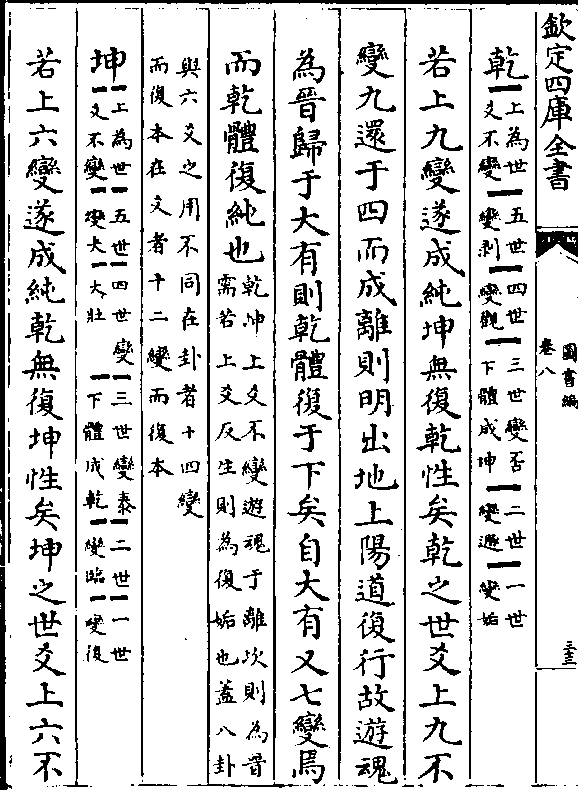 欽定四庫全書
圖書編
卷八
三三
乾
上為世
爻不變
五世
變剥
四世
變觀
三世變否
下體成坤
二世
變遯
一世
變姤
若上九變遂成純坤無復乾性矣乾之世爻上九不
變九還于四而成離則明出地上陽道復行故遊魂
為晉歸于大有則乾體復于下矣自大有又七變焉
而乾體復純也
乾坤上爻不變遊魂于離坎則為晉
需若上爻反生則為復姤也蓋八卦
與六爻之用不同在卦者十四變
而復本在爻者十二變而復本
坤
上為世
爻不變
五世
變夬
四世變
大壯
三世變泰
下體成乾
二世
變臨
一世
變復
若上六變遂成純乾無復坤性矣坤之世爻上六不